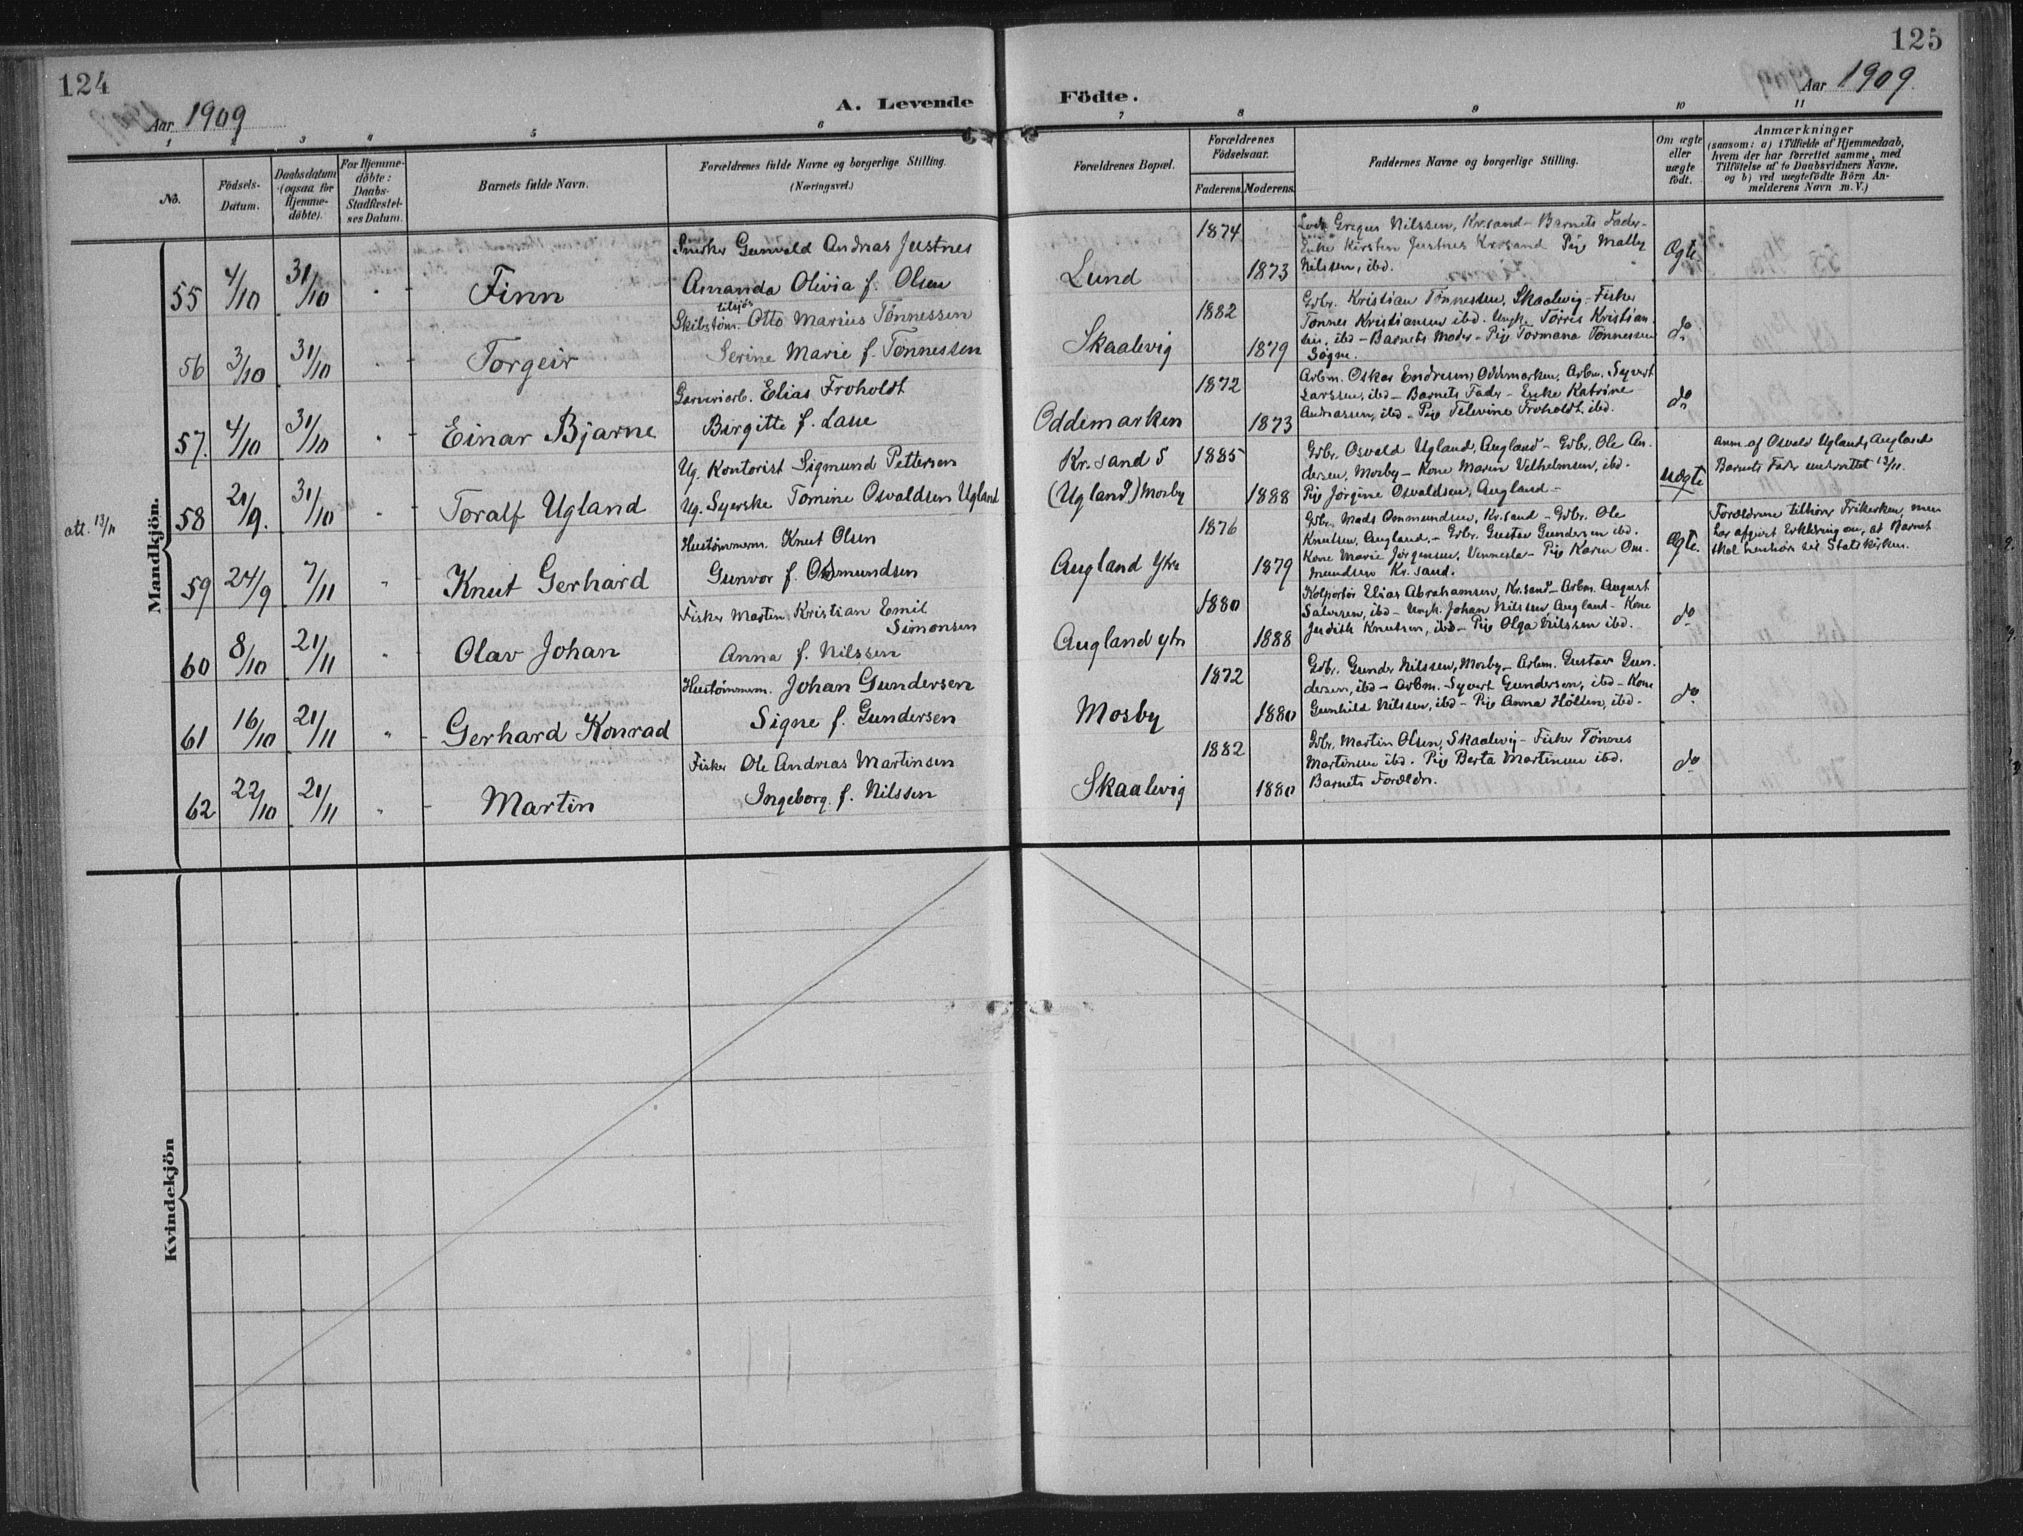 124
125
Aar 1909
A. Levende
Födte.
Aar 1909.
1
2
3
4
5
6
7
8
9
10
11
No.
Födsels-
Datum.
Daabsdatum
(ogsaa for
Hjemme-
döbte).
For Hjemme-
döbte:
Daabs-
Stadfæstel-
ses Datum.
Barnets fulde Navn.
Forældrenes fulde Navne og borgerlige Stilling.
(Næringsvei.)
Forældrenes Bopæl.
Forældrenes
Födselsaar.
Faderens.
Moderens.
Faddernes Navne og borgerlige Stilling.
Om ægte
eller
uægte
født.
Anmærkninger
(saasom: a) i Tilfælde af Hjemmedaab,
hvem der har forrettet samme, med
Tilföielse af to Daabsvidners Navne,
og b) ved uægtefödte Börn An-
melderens Navn m. V.)
Mandkjön.
55 4/10 31/10 " - Finn
Snedker Gunvald Andreas Justnes
Amanda Olivia f. Olsen
Lund 1874 1873
Gregus Nilssen, Kr.sand - Barnets Fader -
Enke Kirsten Justnes Kr.sand Pige Malby
Nilssen, ibd.
Ægte
56 3/10 31/10 " - Torgeir
tilsjøs
Skibstøm. Otto Marius Tønnessen
Serine Marie f. Tønnessen
Skaalevig 1882 1879
Gdbr. Kristian Tønnessen, Skaalevig - Fisker
Tønnes Kristiansen ibd. Ungk. Torris Kristian-
sen, ibd - Barnets Moder - Pige Tormana Tønnessen
Søgne.
do
57. 4/10 31/10 " - Einar Bjarne
Garveriarb. Elias Froholdt
Birgitte f. Lasse
Oddemarken 1872 1873
Arbm. Oskar Endresen, Oddemarken, Arbm. Syvert
Larssen, ibd - Barnets Fader - Enke Katrine
Andrassen, ibd - Pige Televine Froholdt, ibd.
do
att. 13/11
58 21/9. 31/10 " - Toralf Ugland
Ug. Kontorist Sigmund Pettersen
Ug. Syerske Tomine Osvaldsen Ugland
Kr.sand S
(Ugland) Mosby 1885 1888
Gdbr. Osvald Ugland, Augland - Gdbr. Ole An-
dersen, Mosby - Kone Maren Vilhelmsen, ibd.
Pige Jørgine Osvaldsen, Augland -
uægte
Anm. af Osvald Ugland, Augland
Barnets Fader underrettet 13/11.
59 24/9 7/11 " - Knut Gerhard
Hustømmerm. Knut Olsen
Gunvor f. Osmundsen
Augland Ytre 1876 1879
Gdbr. Mads Ommundsen, Kr.sand - Gdbr. Ole
Knutsen, Augland, - Gdbr. Gustav Gundersen ibd.
Kone Marie Jørgensen, Vennesla - Pige Karen Om-
mundsen Kr.sand.
Ægte.
Forældrene tilhører Frikirken, men
har afgivet Erklæring om, at Barnet
skal henhøre til Statskirken.
60 8/10 21/11 " - Olav Johan
Fisker Martin Kristian Emil
Simonsen
Anna f. Nilssen
Augland ytre 1880 1888
Kolportør Elias Abrahamsen, Kr.sand - Arbm. August
Salvessen, ibd - Ungk. Johan Nilssen, Augland - Kone
Judith Knutsen, ibd - Pige Olga Nilssen ibd.
do
61 16/10 21/11 " - Gerhard Konrad
Hustømmerm. Johan Gundersen
Signe f. Gundersen
Mosby 1872 1880
Gdbr. Gunder Nilssen, Mosby - Arbm. Gustav Gun-
dersen, ibd - Arbm. Syvert Gundersen, ibd - Kone
Gunhild Nilssen, ibd - Pige Anna Holsen, ibd.
do
62 22/10 21/11 " - Martin
Fisker Ole Andreas Martinsen
Ingeborg f. Nilssen
Skaalevig 1882 1880
Gdbr. Martin Olsen, Skaalevig - Fisker Tønnes
Martinsen ibd. Pige Berta Martinsen ibd.
Barnets Forældre.
do
Kvindekjön